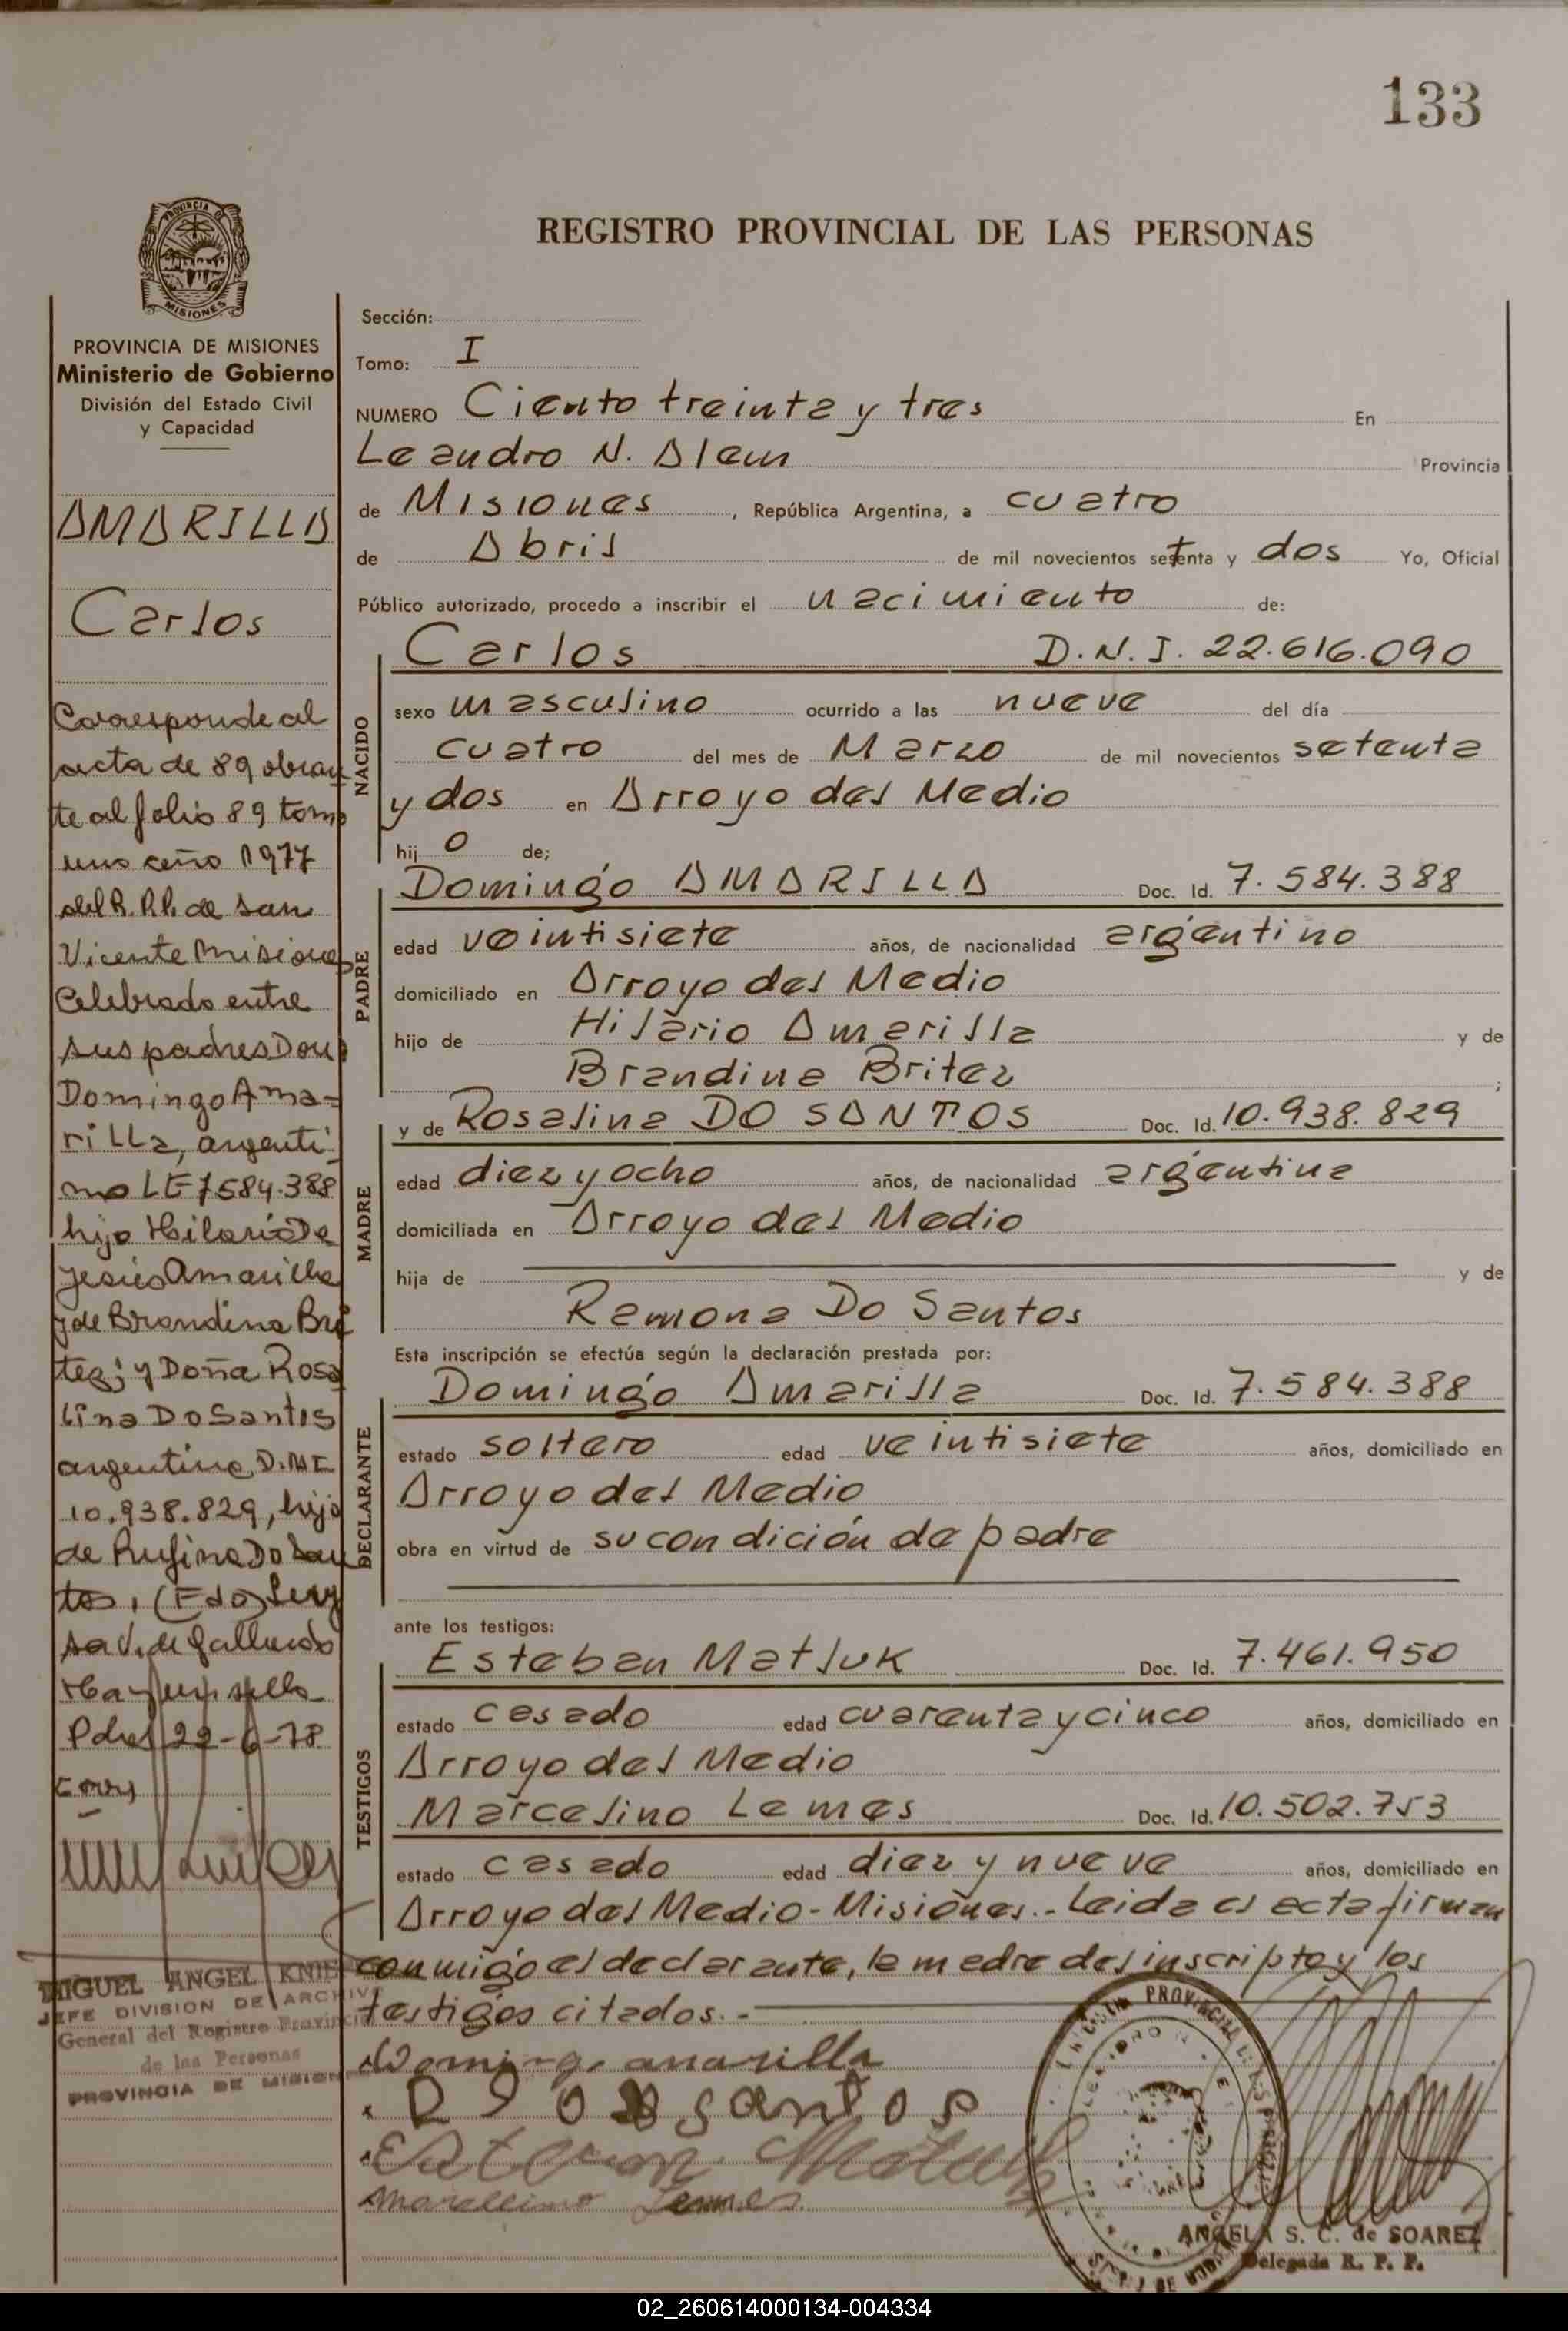 133
PROVINCIA DE
MISIONES
REGISTRO PROVINCIAL DE LAS PERSONAS
PROVINCIA DE MISIONES
Ministerio de Gobierno
División del Estado Civil
y Capacidad
AMARILLA
Carlos
Corresponde al
acta de 89 obran
te al folio 89 tomo
uno año 1977
del R.P.P. de San
Vicente Misiones
Celebrado entre
sus padres Don
Domingo Ama-
rilla, argenti-
no LE 7584.388
hijo Hilario De
Jesús Amarilla
y de Brandina Bri
tez; y Doña Rosa
lina Do Santos
argentina, D.N.I
10.938.829, hija
de Rufina Do San
tos, (Fdo)
de Gallardo
Hay un sello
Pdas 22-6-78
MIGUEL ANGEL KNIE
JEFE DIVISION DE ARCHIVO
General del Registro Provincial
de las Personas
PROVINCIA DE MISIONES
Sección:
Tomo: I
NUMERO Ciento treinta y tres En
Leandro N. Alem Provincia
de Misiones, República Argentina, a cuatro
de Abril de mil novecientos setenta y dos Yo, Oficial
Público autorizado, procedo a inscribir el nacimiento de:
NACIDO
Carlos D.N.I. 22.616.090
sexo masculino ocurrido a las nueve del día
cuatro del mes de Marzo de mil novecientos setenta
y dos en Arroyo del Medio
hij o de;
PADRE
Domingo AMARILLA Doc. Id. 7.584.388
edad veintisiete años, de nacionalidad argentino
domiciliado en Arroyo del Medio
hijo de Hilario Amarilla y de
Brandina Britez ;
MADRE
y de Rosalina DO SANTOS Doc. Id. 10.938.829
edad diez y ocho años, de nacionalidad argentina
domiciliada en Arroyo del Medio
hija de y de
Ramona Do Santos
Esta inscripción se efectúa según la declaración prestada por:
DECLARANTE
Domingo Amarilla Doc. Id. 7.584.388
estado soltero edad veintisiete años, domiciliado en
Arroyo del Medio
obra en virtud de su condición de padre
ante los testigos:
TESTIGOS
Esteban Matluk Doc. Id. 7.461.950
estado casado edad cuarenta y cinco años, domiciliado en
Arroyo del Medio
Marcelino Lemes Doc. Id. 10.502.753
estado casado edad diez y nueve años, domiciliado en
Arroyo del Medio - Misiones.- Leida el acta firman
conmigo el declarante, la madre del inscripto y los
testigos citados.-
Domingo amarilla
santos
Esteban Matluk
Marcelino Lemes
ANGELA S. C. de SOAREZ
Delegada R. P. P.
02_260614000134-004334